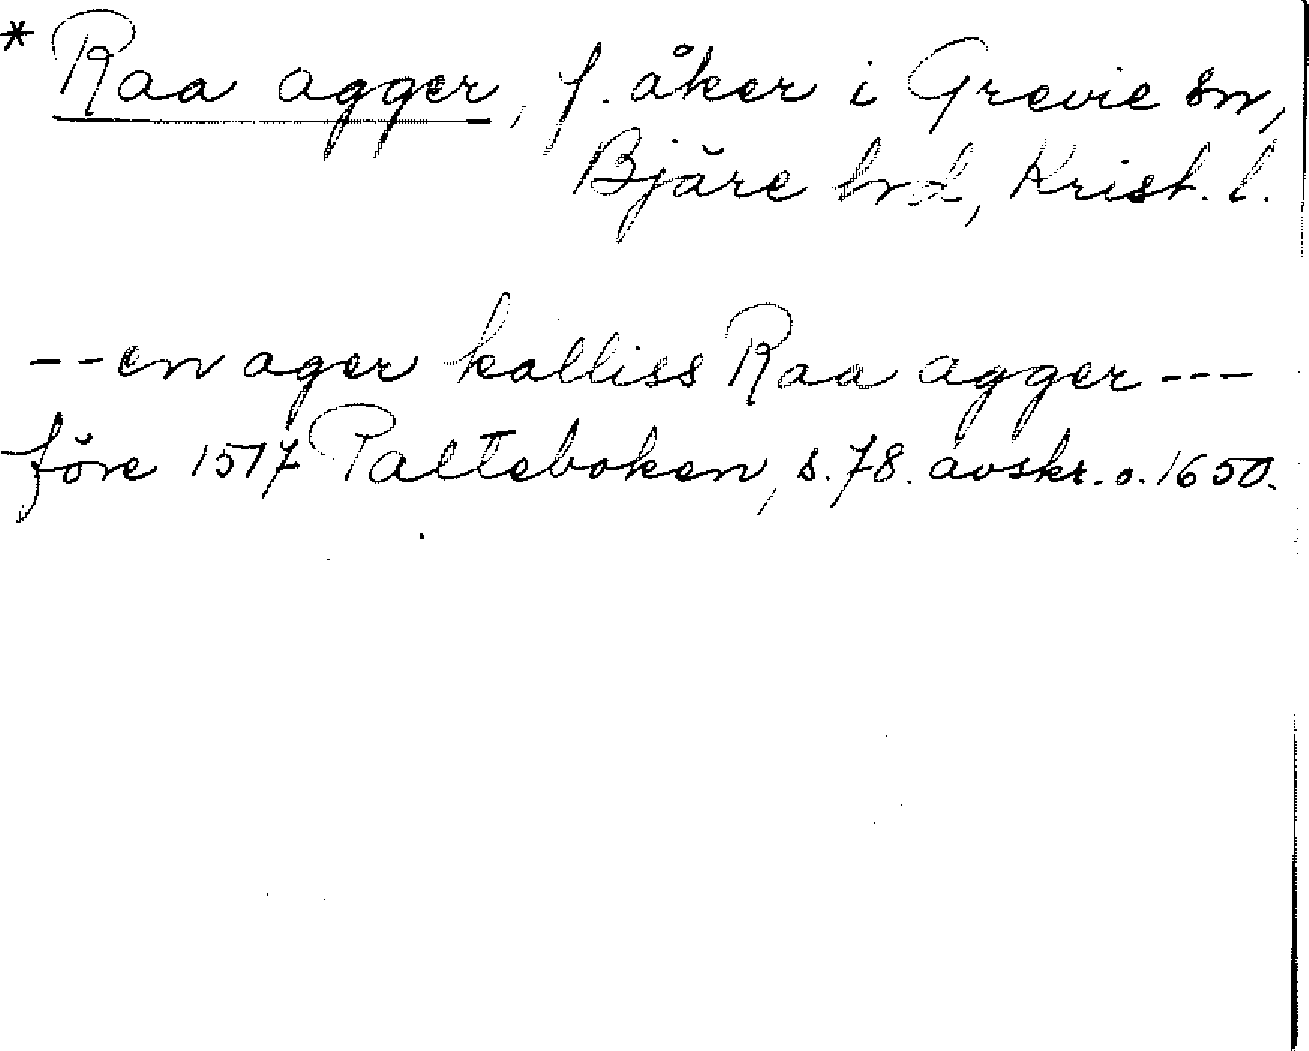 * Raa agger, f. åker i Grevie sn,
Bjäre hrd, Krist. l.
-- en ager kalliss Raa agger ---
före 1517 Palteboken, s. 78. avskr. o. 1650.